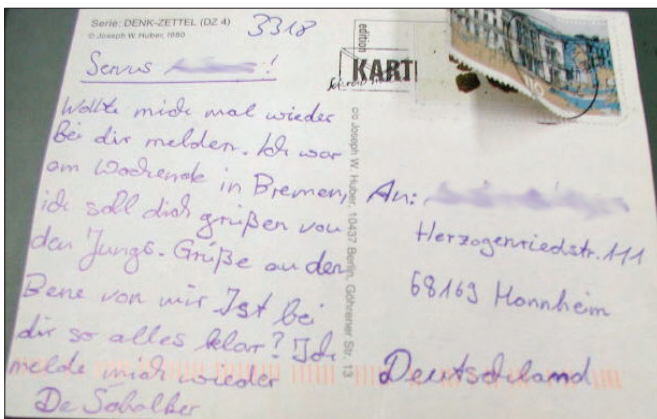 Serie: DENK-ZETTEL (DZ 4)
© Joseph W. Huber, 1980
3318
Servus !
Wollte mich mal wieder
bei dir melden. Ich war
am Wochende in Bremen,
ich soll dich grüßen von
den Jungs. Grüße an den
Bene von mir Ist bei
dir so alles klar? Ich
melde mich wieder
De Schalker
edition
KART
© Joseph W. Huber, 10437 Berlin, Göhrener Str. 13
110
An:
Herzogenriedstr. 111
68169 Mannheim
Deutschland